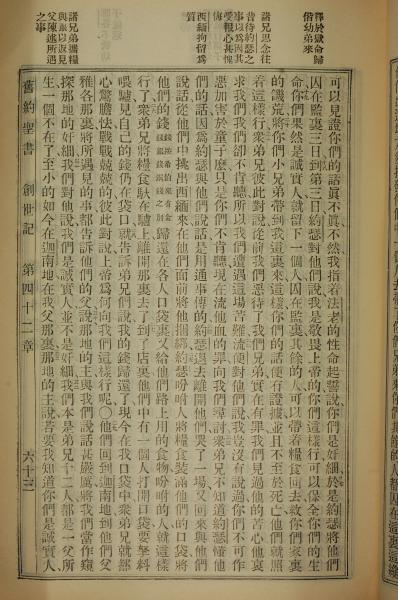 釋於獄命歸
偕幼弟來
諸兄思念往
昔待約瑟之
事以爲因其
受報心甚愧
悔
西緬拘留爲
質
諸兄弟攜糧
與銀以返見
父陳述所遇
之事
可以見證你們的話眞不眞不然我指着法老的性命起誓說你們是奸細於是約瑟將他們
囚在監裏三日到第三日約瑟對他們說我是敬畏上帝的你們這樣行可以保全你們的生
命你們果然是誠實人就留下一個人囚在監裏其餘的人可以帶着糧食回去救你們家裏
的饑荒將你們小兄弟帶到我這裏來這樣你們的話便有證據並且不至於死亡他們就照
着這樣行衆弟兄彼此對說從前我們惡待了我們兄弟實在有罪我們見過他的苦心他哀
求我們我們卻不肯聽所以我們遭遇這場苦難流便對他們說我豈沒有說過你們不可作
惡加害於童子麼只是你們不肯聽現在流他血的罪向我們尋討衆弟兄不知道約瑟懂他
們的話因爲約瑟與他們說話是用通事傳的約瑟退去離開他們哭了一場又回來與他們
說話從他們中挑出西緬來在他們面前將他捆綁約瑟吩咐人將糧食裝滿他們的口袋將
他們的錢歸還在各人口袋裏又給他們路上用的食物吩咐的人就這樣
行了衆弟兄將糧食馱在驢上離開那裏去了到了店裏他們中有一個人打開口袋要拏料
喂驢見自己的錢仍在袋口就告訴弟兄們說我的錢歸還了現今在我口袋中衆弟兄就都
心驚膽怯戰戰兢兢的彼此對說上帝爲何向我們這樣行呢〇他們回到迦南地到他們父
雅各那裏將所遇見的事都告訴他們的父說那地的主與我們說話甚嚴厲將我們當作窺
探那地的奸細我們對他說我們是誠實人並不是奸細我們本是弟兄十二人都是一父所
生一個不在了至小的如今在迦南地在我父那裏那地的主說若要我知道你們是誠實人
舊約聖書 創世記 第四十二章 六十三